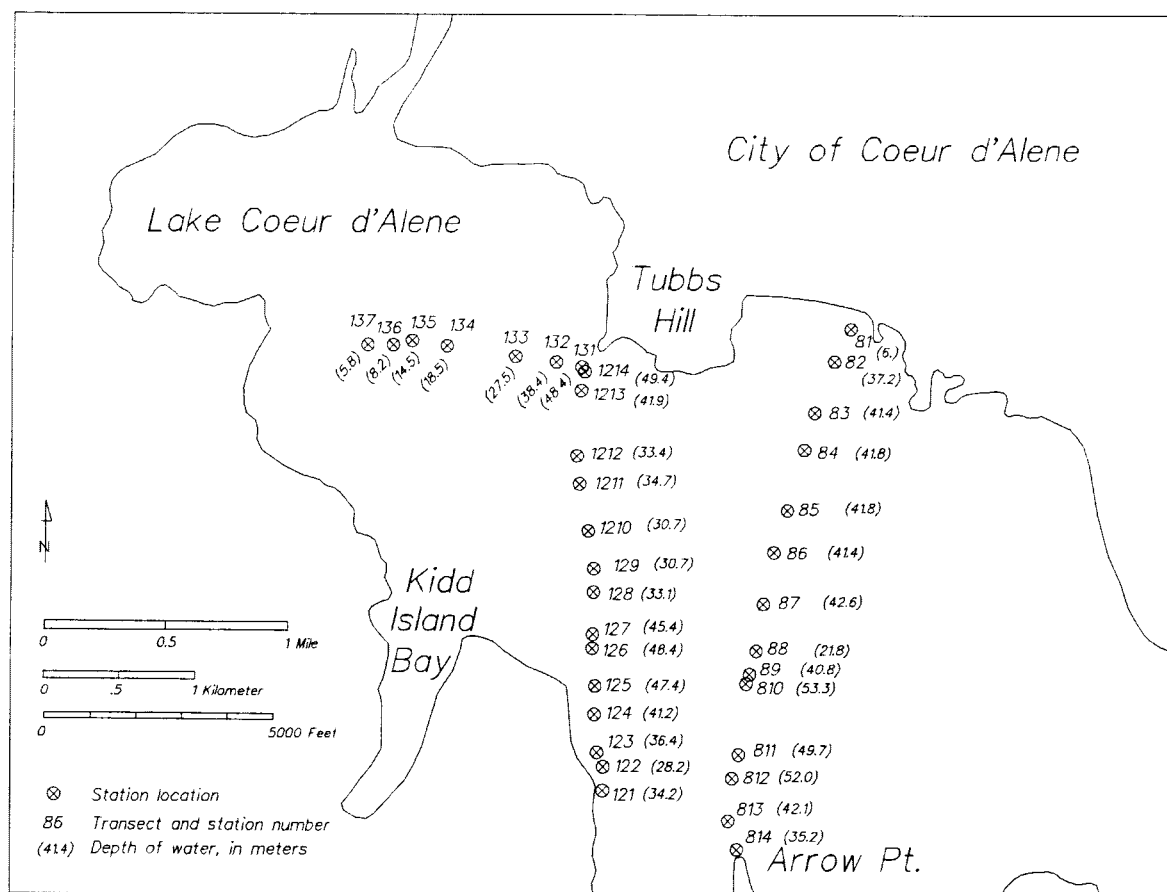 City of Coeur d'Alene
Lake Coeur d'Alene
Tubbs
Hill
137
136
135
134
133
132
131
(5.8)
(8.2)
(14.5)
(18.5)
(27.5)
(38.4)
(48.4)
1214 (49.4)
1213 (41.9)
1212 (33.4)
1211 (34.7)
1210 (30.7)
129 (30.7)
128 (33.1)
127 (45.4)
126 (48.4)
125 (47.4)
124 (41.2)
123 (36.4)
122 (28.2)
121 (34.2)
81 (6.)
82 (37.2)
83 (41.4)
84 (41.8)
85 (41.8)
86 (41.4)
87 (42.6)
88 (21.8)
89 (40.8)
810 (53.3)
811 (49.7)
812 (52.0)
813 (42.1)
814 (35.2)
Arrow Pt.
Kidd
Island
Bay
N
0 0.5 1 Mile
0 .5 1 Kilometer
0 5000 Feet
Station location
86 Transect and station number
(41.4) Depth of water, in meters